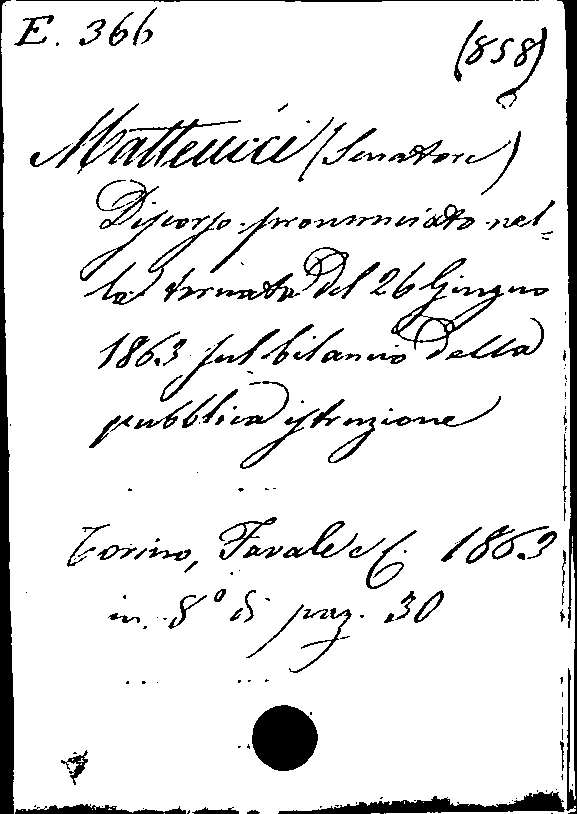 E. 366
(858)
Matteucci (Senatore)
Discorso pronunciato nel=
la tornata del 26 Giugno
1863 sul bilancio della
pubblica istruzione
Torino, Favale e C. 1863
in 8° di pag. 30